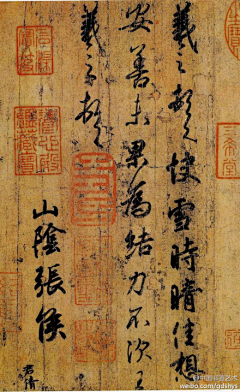 羲之頓首快雪時晴佳想
安善未果為結力不次王
羲之頓首
山陰張侯
君倩
三希堂
weibo.com/gdshys